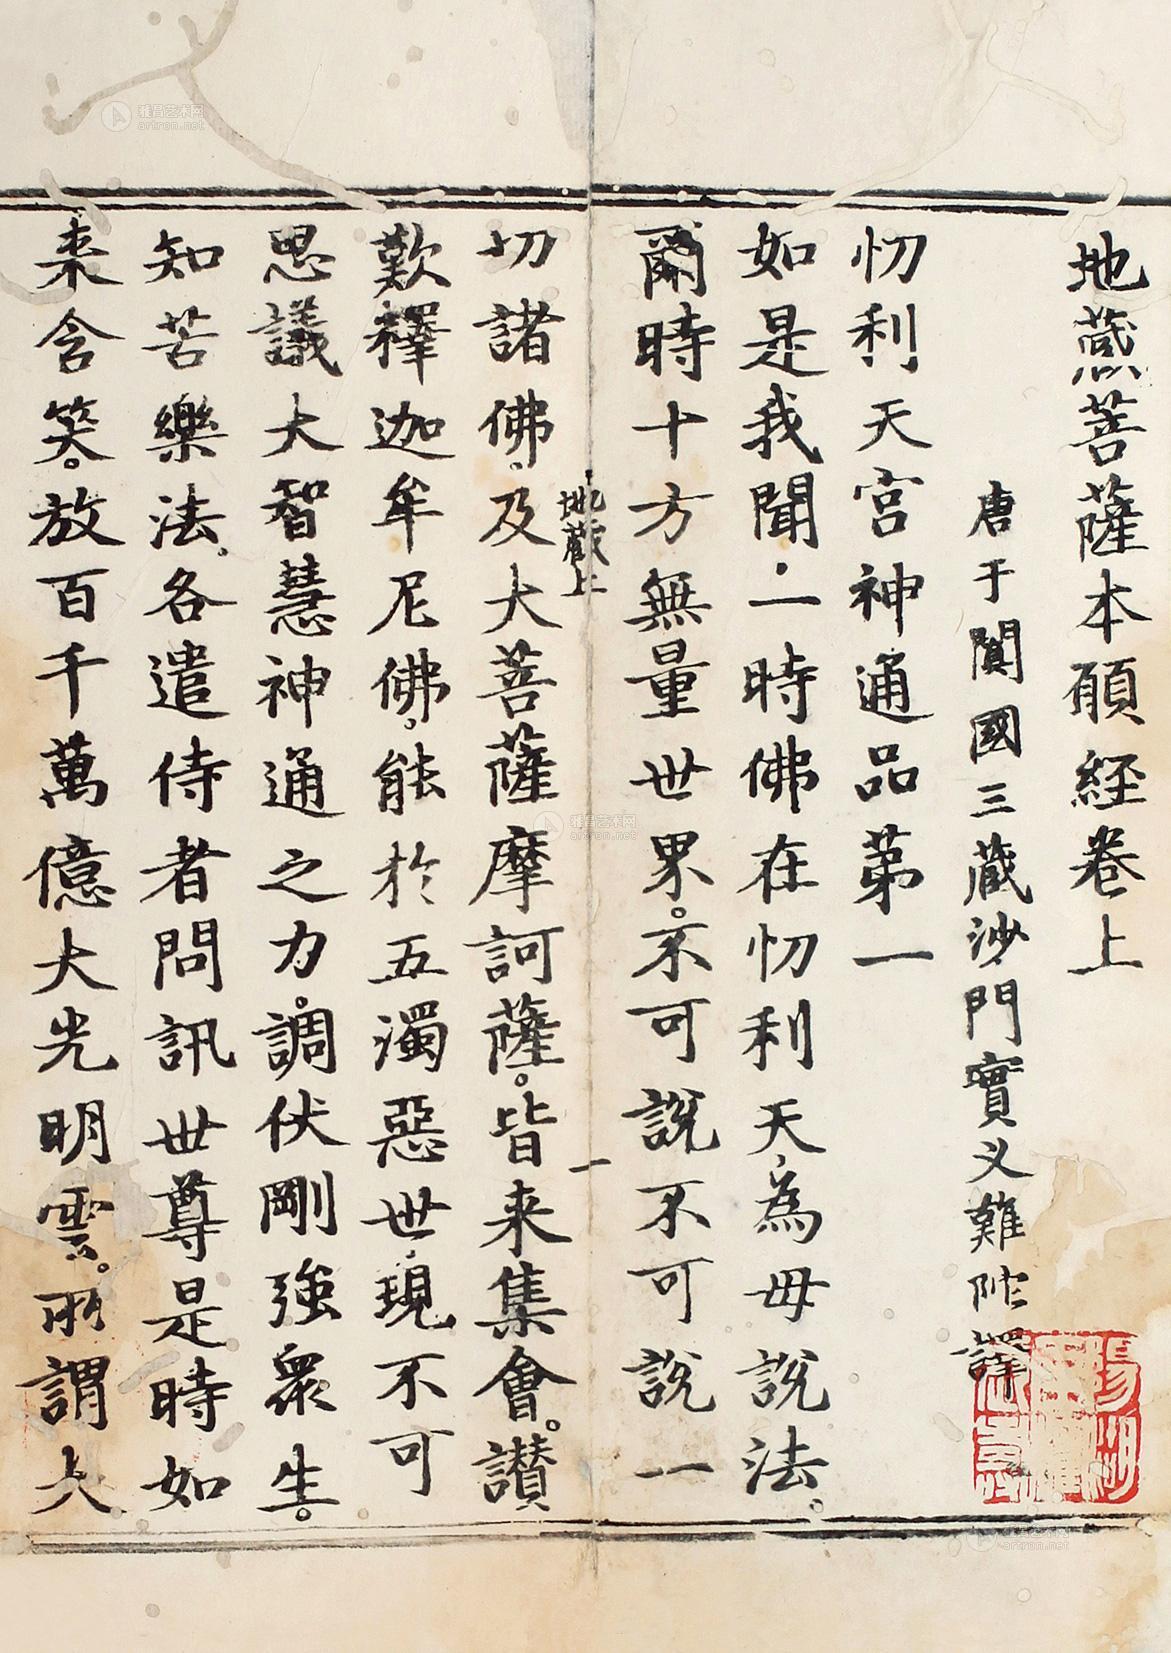 地蔵菩薩本願経卷上
唐于闐國三藏沙門實叉難陀譯
忉利天宮神通品第一
如是我聞一時佛在忉利天為母說法。
爾時十方無量世界。不可說不可說一
地藏上
一
切諸佛。及大菩薩摩訶薩。皆来集會。讃
歎釋迦牟尼佛。能於五濁惡世現不可
思議大智慧神通之力。調伏剛強衆生。
知苦樂法。各遣侍者問訊世尊是時如
来含笑。放百千萬億大光明雲。所謂大
雅昌艺术网
artron.net